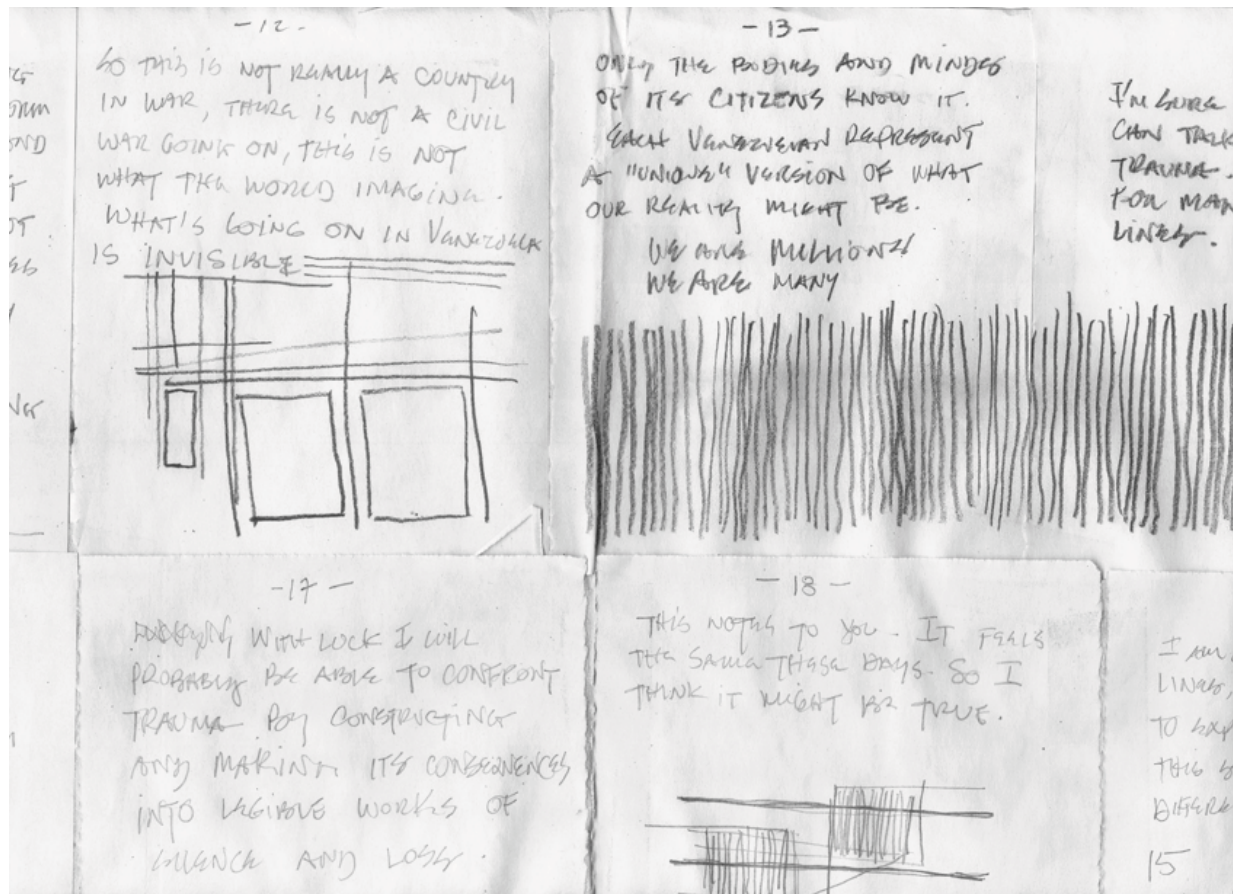 -12-
SO THIS IS NOT REALLY A COUNTRY
IN WAR, THERE IS NOT A CIVIL
WAR GOING ON, THIS IS NOT
WHAT THE WORLD IMAGING.
WHAT'S GOING ON IN VENEZUELA
IS INVISIBLE
-13-
ONLY THE BODIES AND MINDES
OF ITS CITIZENS KNOW IT.
EACH VENEZUELAN REPRESENT
A "UNIQUE" VERSION OF WHAT
OUR REALITY MIGHT BE.
WE ARE MILLIONS
WE ARE MANY
I'M SURE
CAN TALK
TRAUMA.
FOR MAN
LINES.
-17-
WITH LUCK I WILL
PROBABLY BE ABLE TO CONFRONT
TRAUMA BY CONSTRUCTING
AND MAKING ITS CONSEQUENCES
INTO LEGIBLE WORKS OF
SILENCE AND LOSS.
-18-
THIS NOTES TO YOU. IT FEELS
THE SAME THESE DAYS. SO I
THINK IT MIGHT BE TRUE.
I AM
LINES,
TO
THIS
DIFERE
15